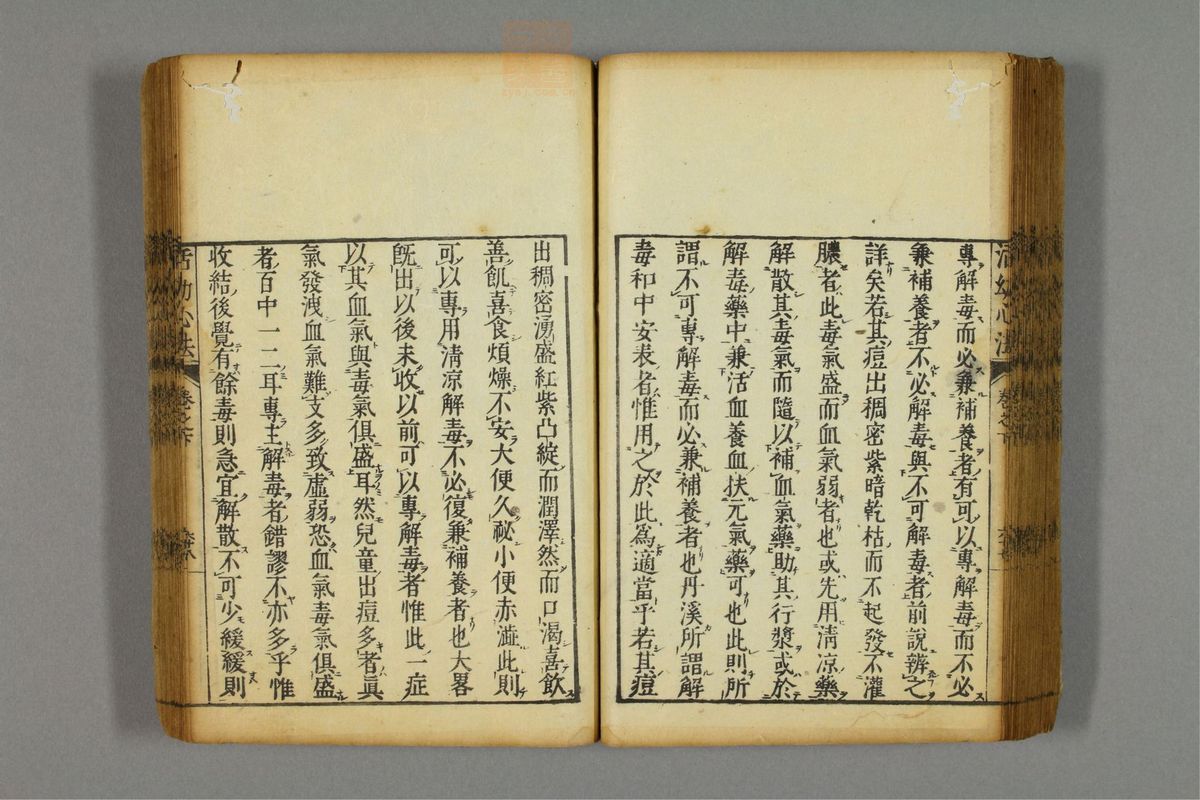 活幼心法
卷之下
專解毒而必兼補養者有可以專解毒而不必
兼補養者不必解毒與不可解毒者前說辨之
詳矣若其痘出稠密紫暗乾枯而不起發不灌
膿者此毒氣盛而血氣弱者也或先用清凉藥
解散其毒氣而隨以補血氣藥助其行漿或於
解毒藥中兼活血養血扶元氣藥可也此則所
謂不可專解毒而必兼補養者也丹溪所謂解
毒和中安表者惟用之於此爲適當乎若其痘
出稠密湧盛紅紫凸綻而潤澤然而口渴喜飲
善飢喜食煩燥不安大便久祕小便赤澁此則
可以專用清凉解毒不必復兼補養者也大畧
旣出以後未收以前可以專解毒者惟此一症
以其血氣與毒氣俱盛耳然兒童出痘多者眞
氣發洩血氣難支多致虛弱恐血氣毒氣俱盛
者百中一二耳專主解毒者錯謬不亦多乎惟
收結後覺有餘毒則急宜解散不可少緩緩則
活幼心法
卷之下